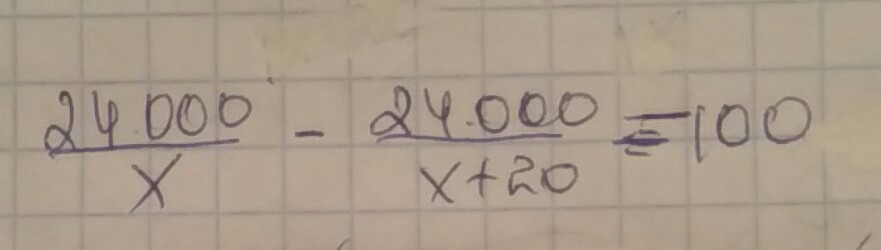 24.000/x - 24.000/x+20 = 100